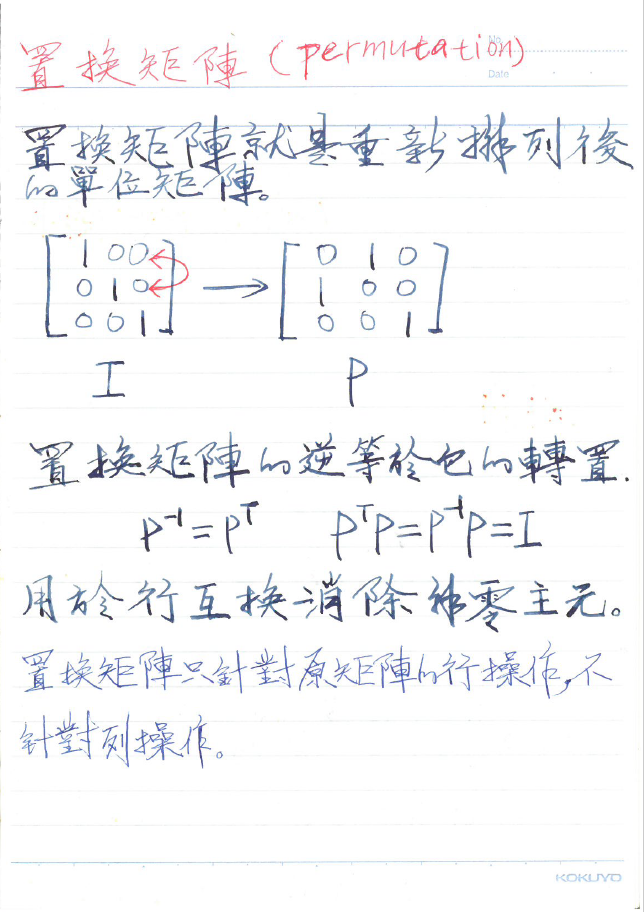 置換矩陣(permutation)
No.
Date
置換矩陣就是重新排列後
的單位矩陣。
[1 0 0] → [0 1 0]
[0 1 0] [1 0 0]
[0 0 1] [0 0 1]
I P
置換矩陣的逆等於它的轉置.
P⁻¹=Pᵀ PᵀP=P⁻¹P=I
用於行互換消除 零主元。
置換矩陣只針對原矩陣的行操作,不
針對列操作。
KOKUYO